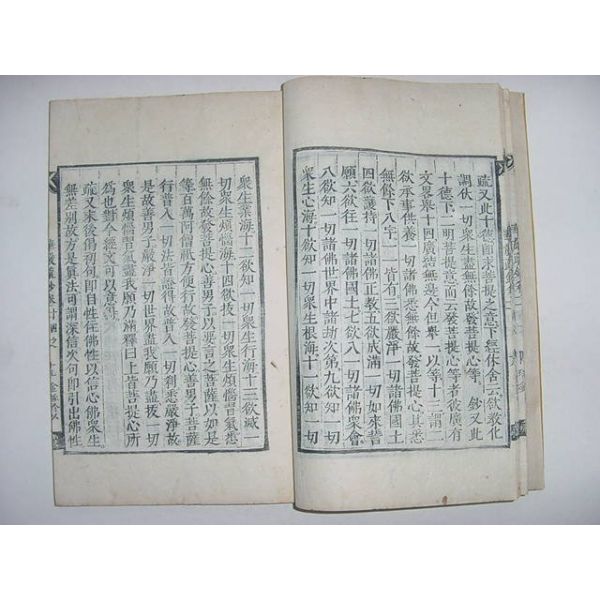 疏又此十德即求菩提之意下無休舍云欲教化
調伏一切衆生盡無餘故發菩提心等鈔又此
十德下二明菩提意而云發菩提心等者彼廣有
文具舉十四廣結無邊今但舉一以等十三謂二
欲承事供養一切諸佛悉無餘故發菩提心其悉
無餘下八字一一皆有三欲嚴淨一切諸佛國土
四欲護持一切諸佛正教五欲成滿一切如來誓
願六欲往一切諸佛國土七欲入一切諸佛衆會
八欲知一切諸佛世界中諸劫次第九欲知一切
衆生心海十欲知一切衆生根海十一欲知一切
衆生業海十二欲知一切衆生行海十三欲滅一
切衆生煩惱海十四欲拔一切衆生煩惱習氣悉
無餘故發菩提心善男子以要言之菩薩以如是
等百萬阿僧祇方便行故發菩提心善男子菩薩
行普入一切法皆證得故普入一切刹悉嚴淨故
是故善男子嚴淨一切世界盡我願乃盡拔一切
衆生煩惱習氣盡我願乃滿釋曰上皆菩提心所
爲也今經文可以意
疏又來後偈初句即自性住佛性以信心佛衆生
無差別故方是眞法可謂深信次句即引出佛性
華嚴疏鈔卷十四之一